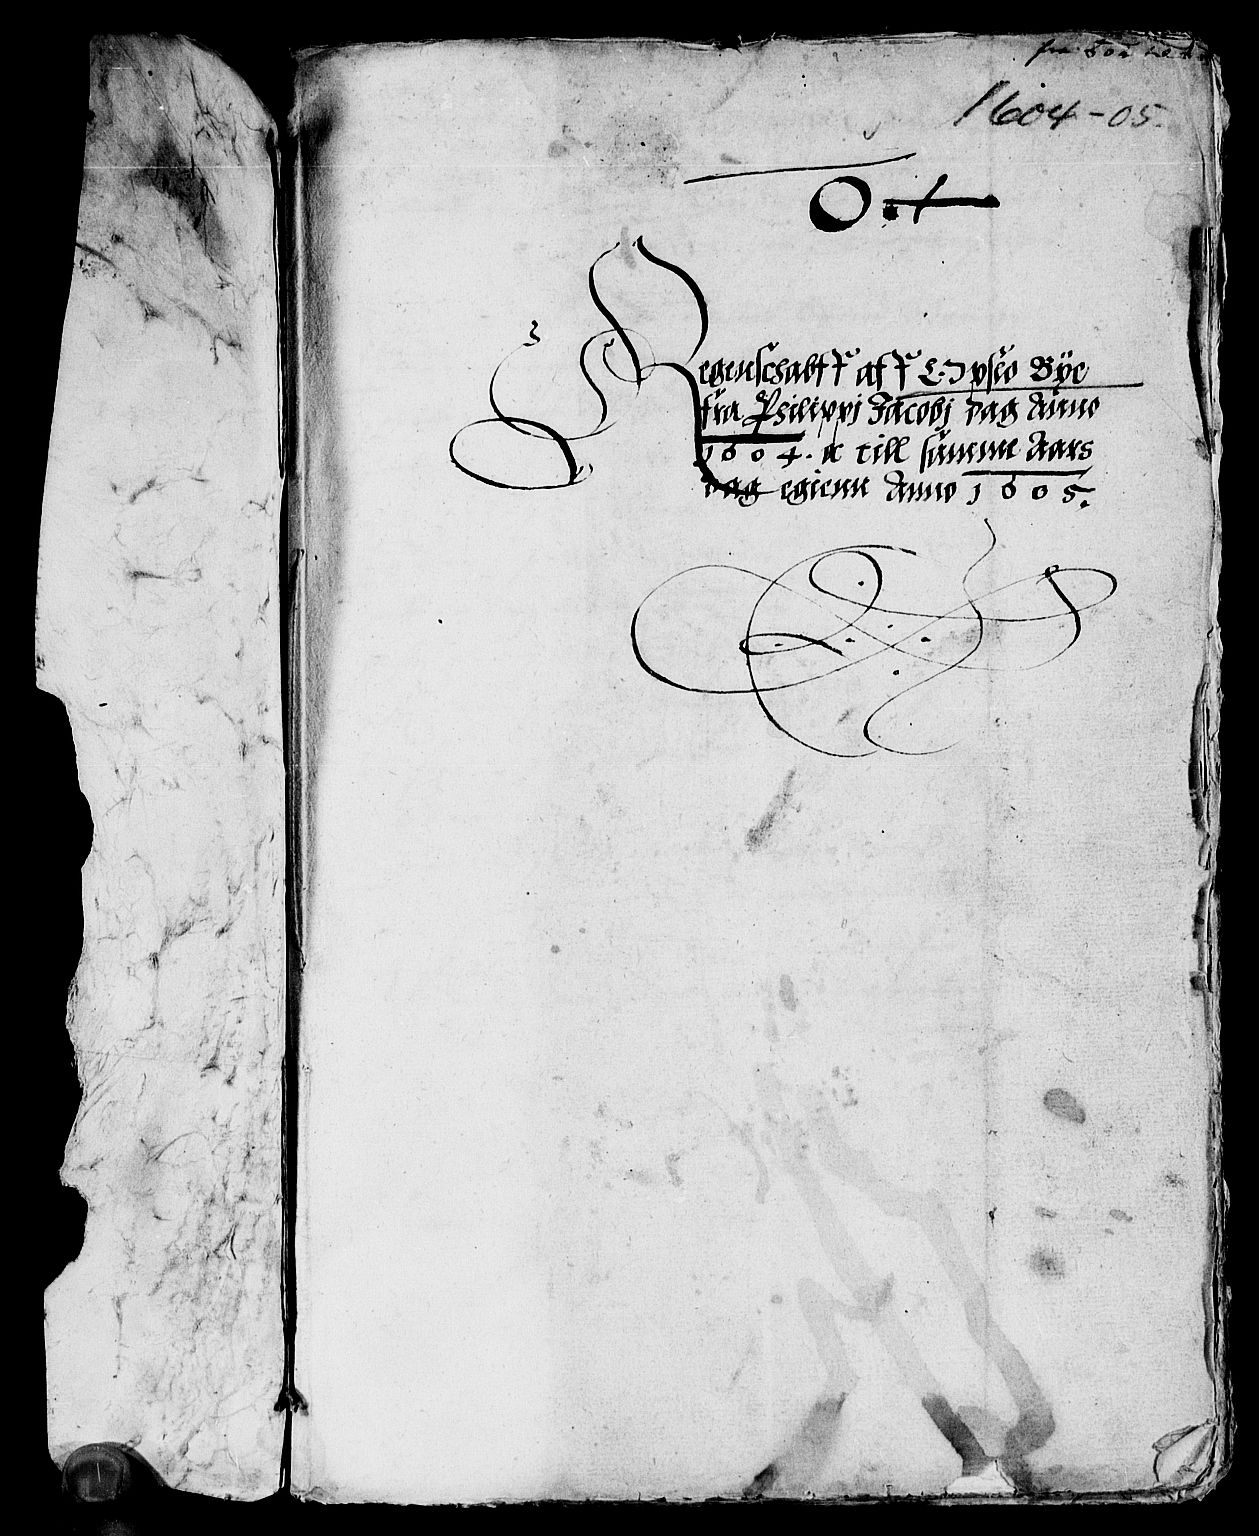 1604-05.
Regenschabff aff Lÿpſco Bÿe
fra Philippi Jacobj dag Anno
1604. oc till samme Aars
dag egienn Anno 1605.